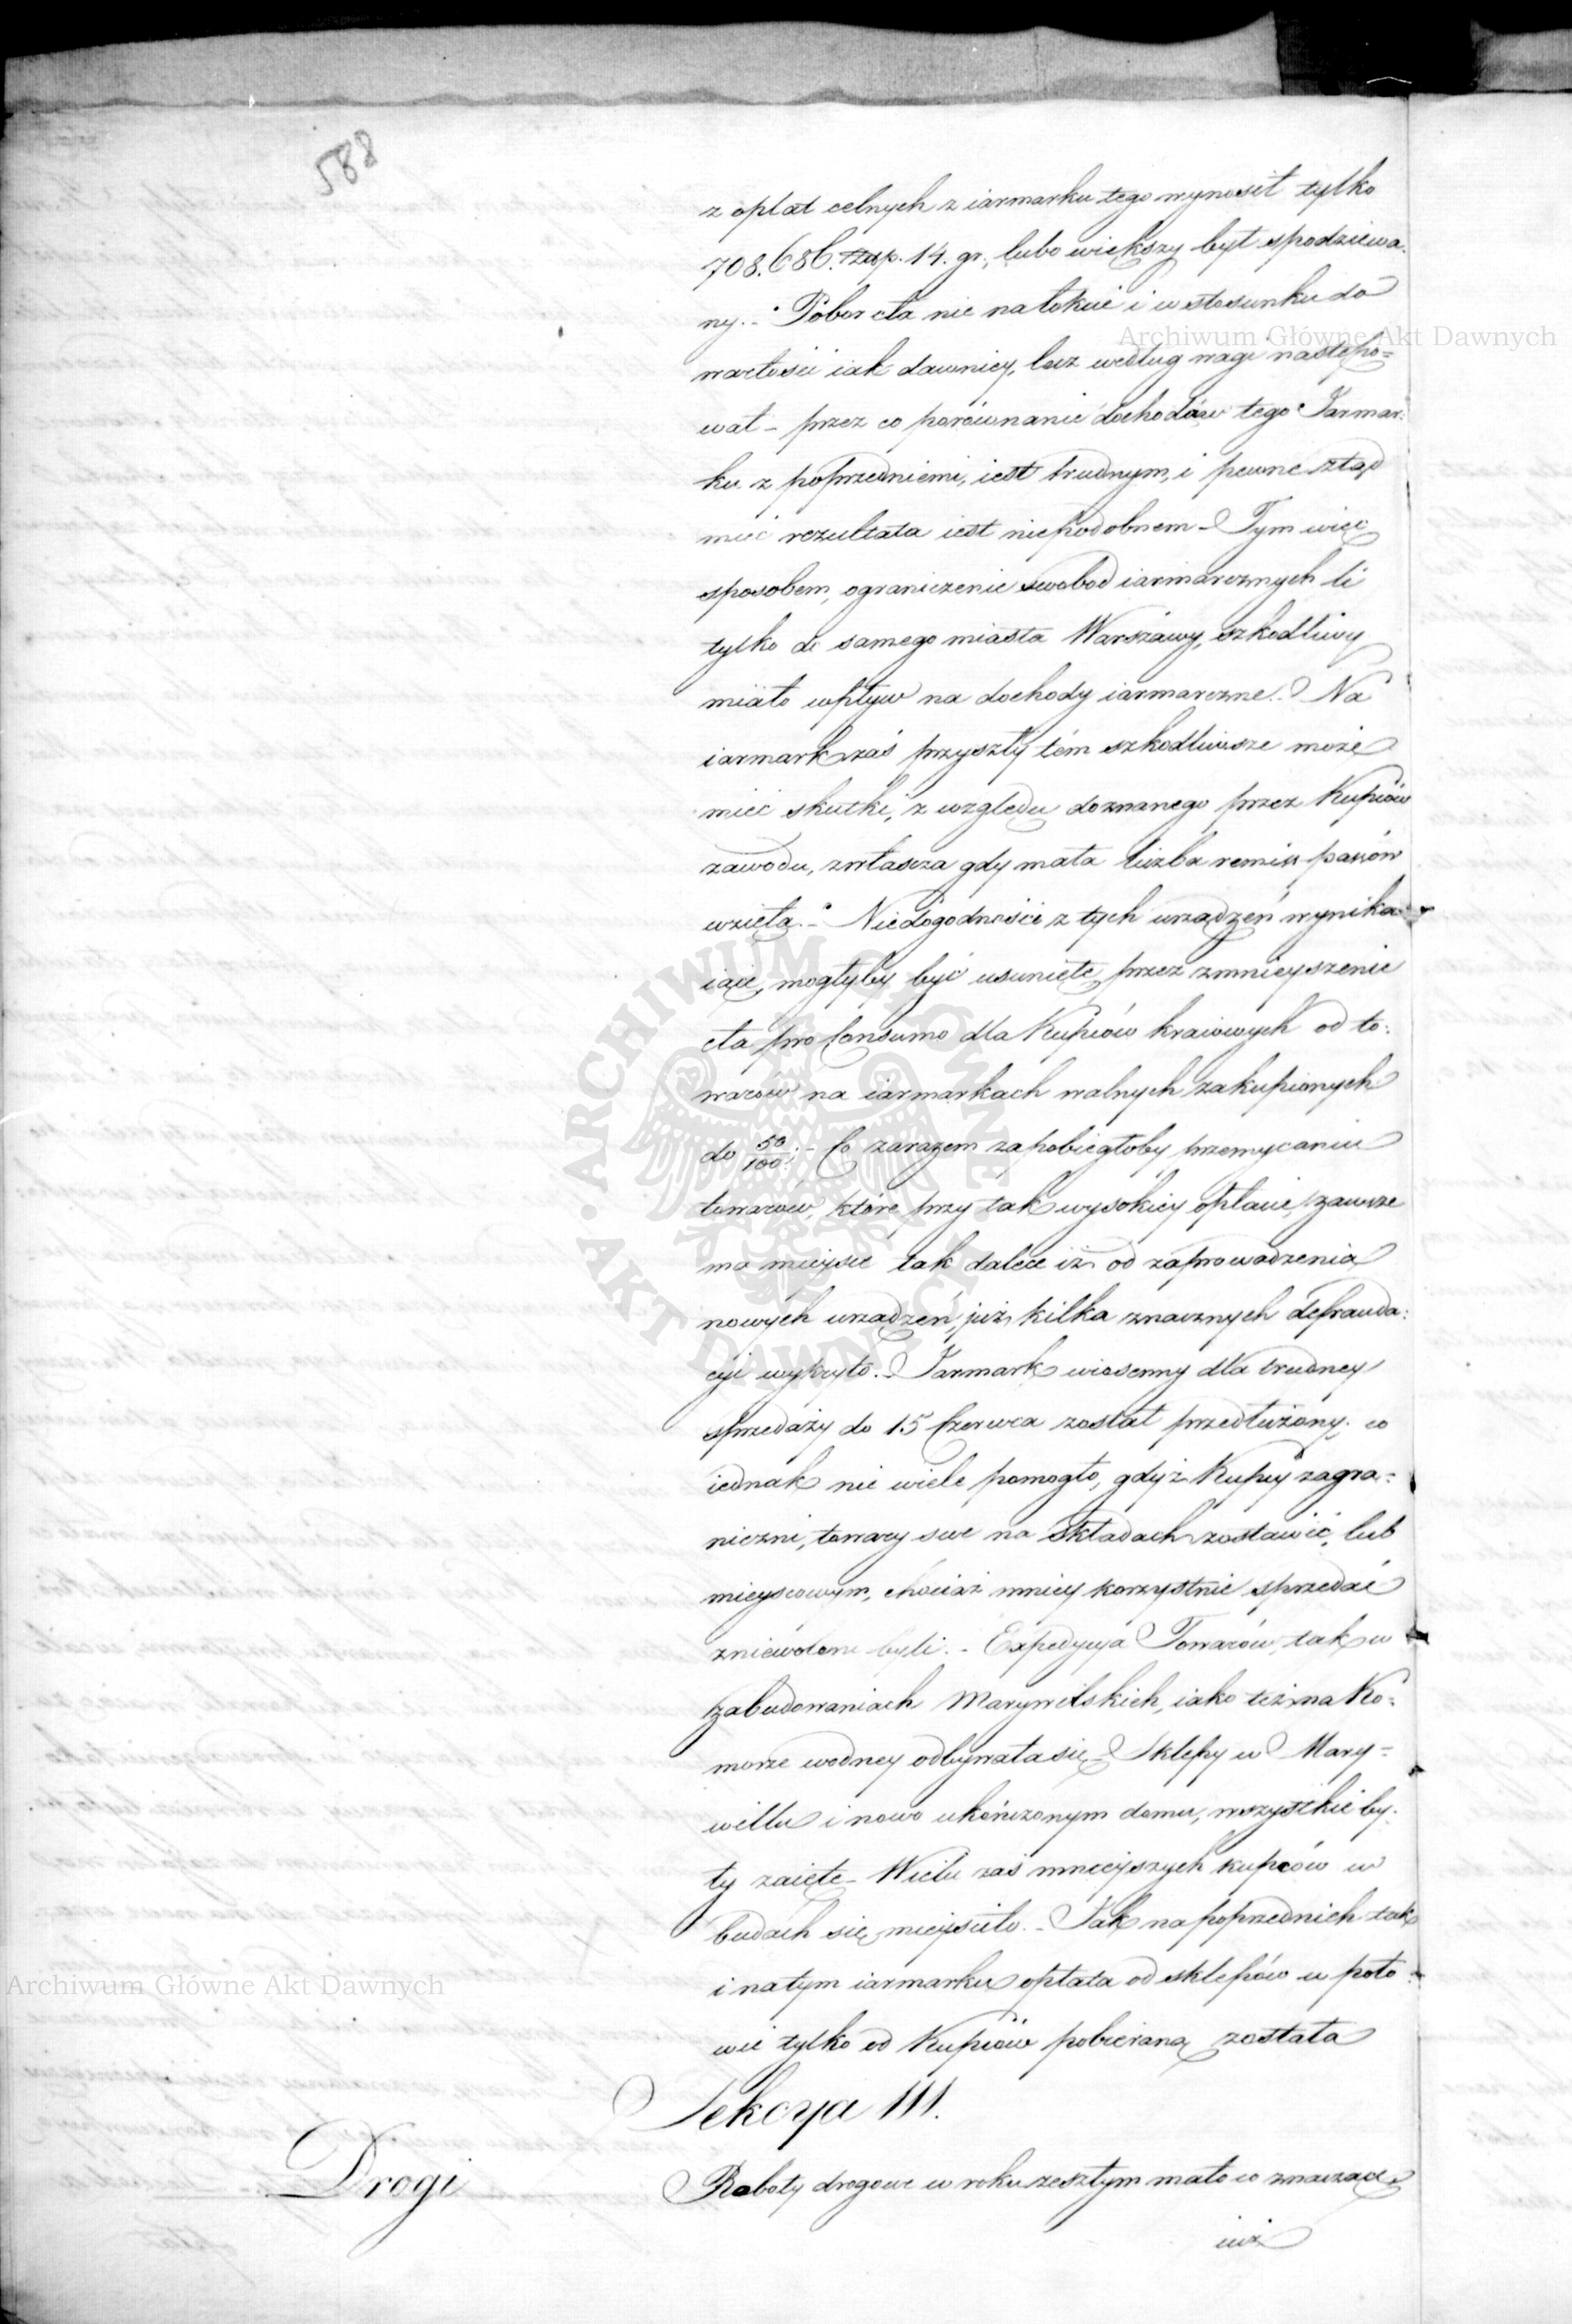 588
z opłat celnych z iarmarku tego wynosił tylko
708.686. 14. gr., lubo większy był spodziewa-
ny.- Pobor cła nie na łokcie i w stosunku do
Archiwum Główne Akt Dawnych
wartości iak dawniey, lecz według wagi następo=
wał - przez co porównanie dochodów tego Jarmar:
ku z poprzedniemi, iest trudnym, i pewne ztąd
mieć rezultata iest niepodobnem - Tym więc
sposobem, ograniczenie swobod iarmarcznych li
tylko do samego miasta Warszawy, szkodliwy
miało wpływ na dochody iarmarczne.- Na
iarmark zaś przyszły tém szkodliwsze może
mieć skutki, z względu doznanego przez Kupców
zawodu, zwłaszcza gdy mała liczba remiss pasów
wzięta.- Niedogodności z tych urządzeń wynika-
iące, mogłyby być usunięte przez zmnieyszenie
cła pro Consumo dla Kupców kraiowych od to:
warów na iarmarkach walnych zakupionych
do 50/100;- Co zarazem zapobiegłoby przemycaniu
towarów, które przy tak wysokiey opłacie, zawsze
ma mieysce tak dalece iż od zaprowadzenia
nowych urządzeń, już kilka znacznych defrauda:
cyi wykryto.- Jarmark wiosenny dla trudney
sprzedaży do 15 Czerwca został przedłużony, co
iednak nie wiele pomogło, gdyż Kupcy zagra=
niczni, towary swe na składach zostawić, lub
mieyscowym, chociaż mniey korzystnie sprzedać
zniewoleni byli.- Expedycya Towarów, tak w
zabudowaniach Marywilskich, iako też na Ko:
morze wodney odbywała się - Sklepy w Mary=
willu i nowo ukończonym domu, wszystkie by:
ły zaięte - Wielu zaś mnieyszych kupców w
budach się mieysciło.- Jak na poprzednich tak
Archiwum Główne Akt Dawnych
i na tym iarmarku opłata od sklepów w poło:
wie tylko od Kupców pobieraną została
Sekcya III.
Drogi
Roboty drogowe w roku zeszłym mało co znaczące
iuż
ARCHIWUM GŁÓWNE · AKT DAWNYCH ·